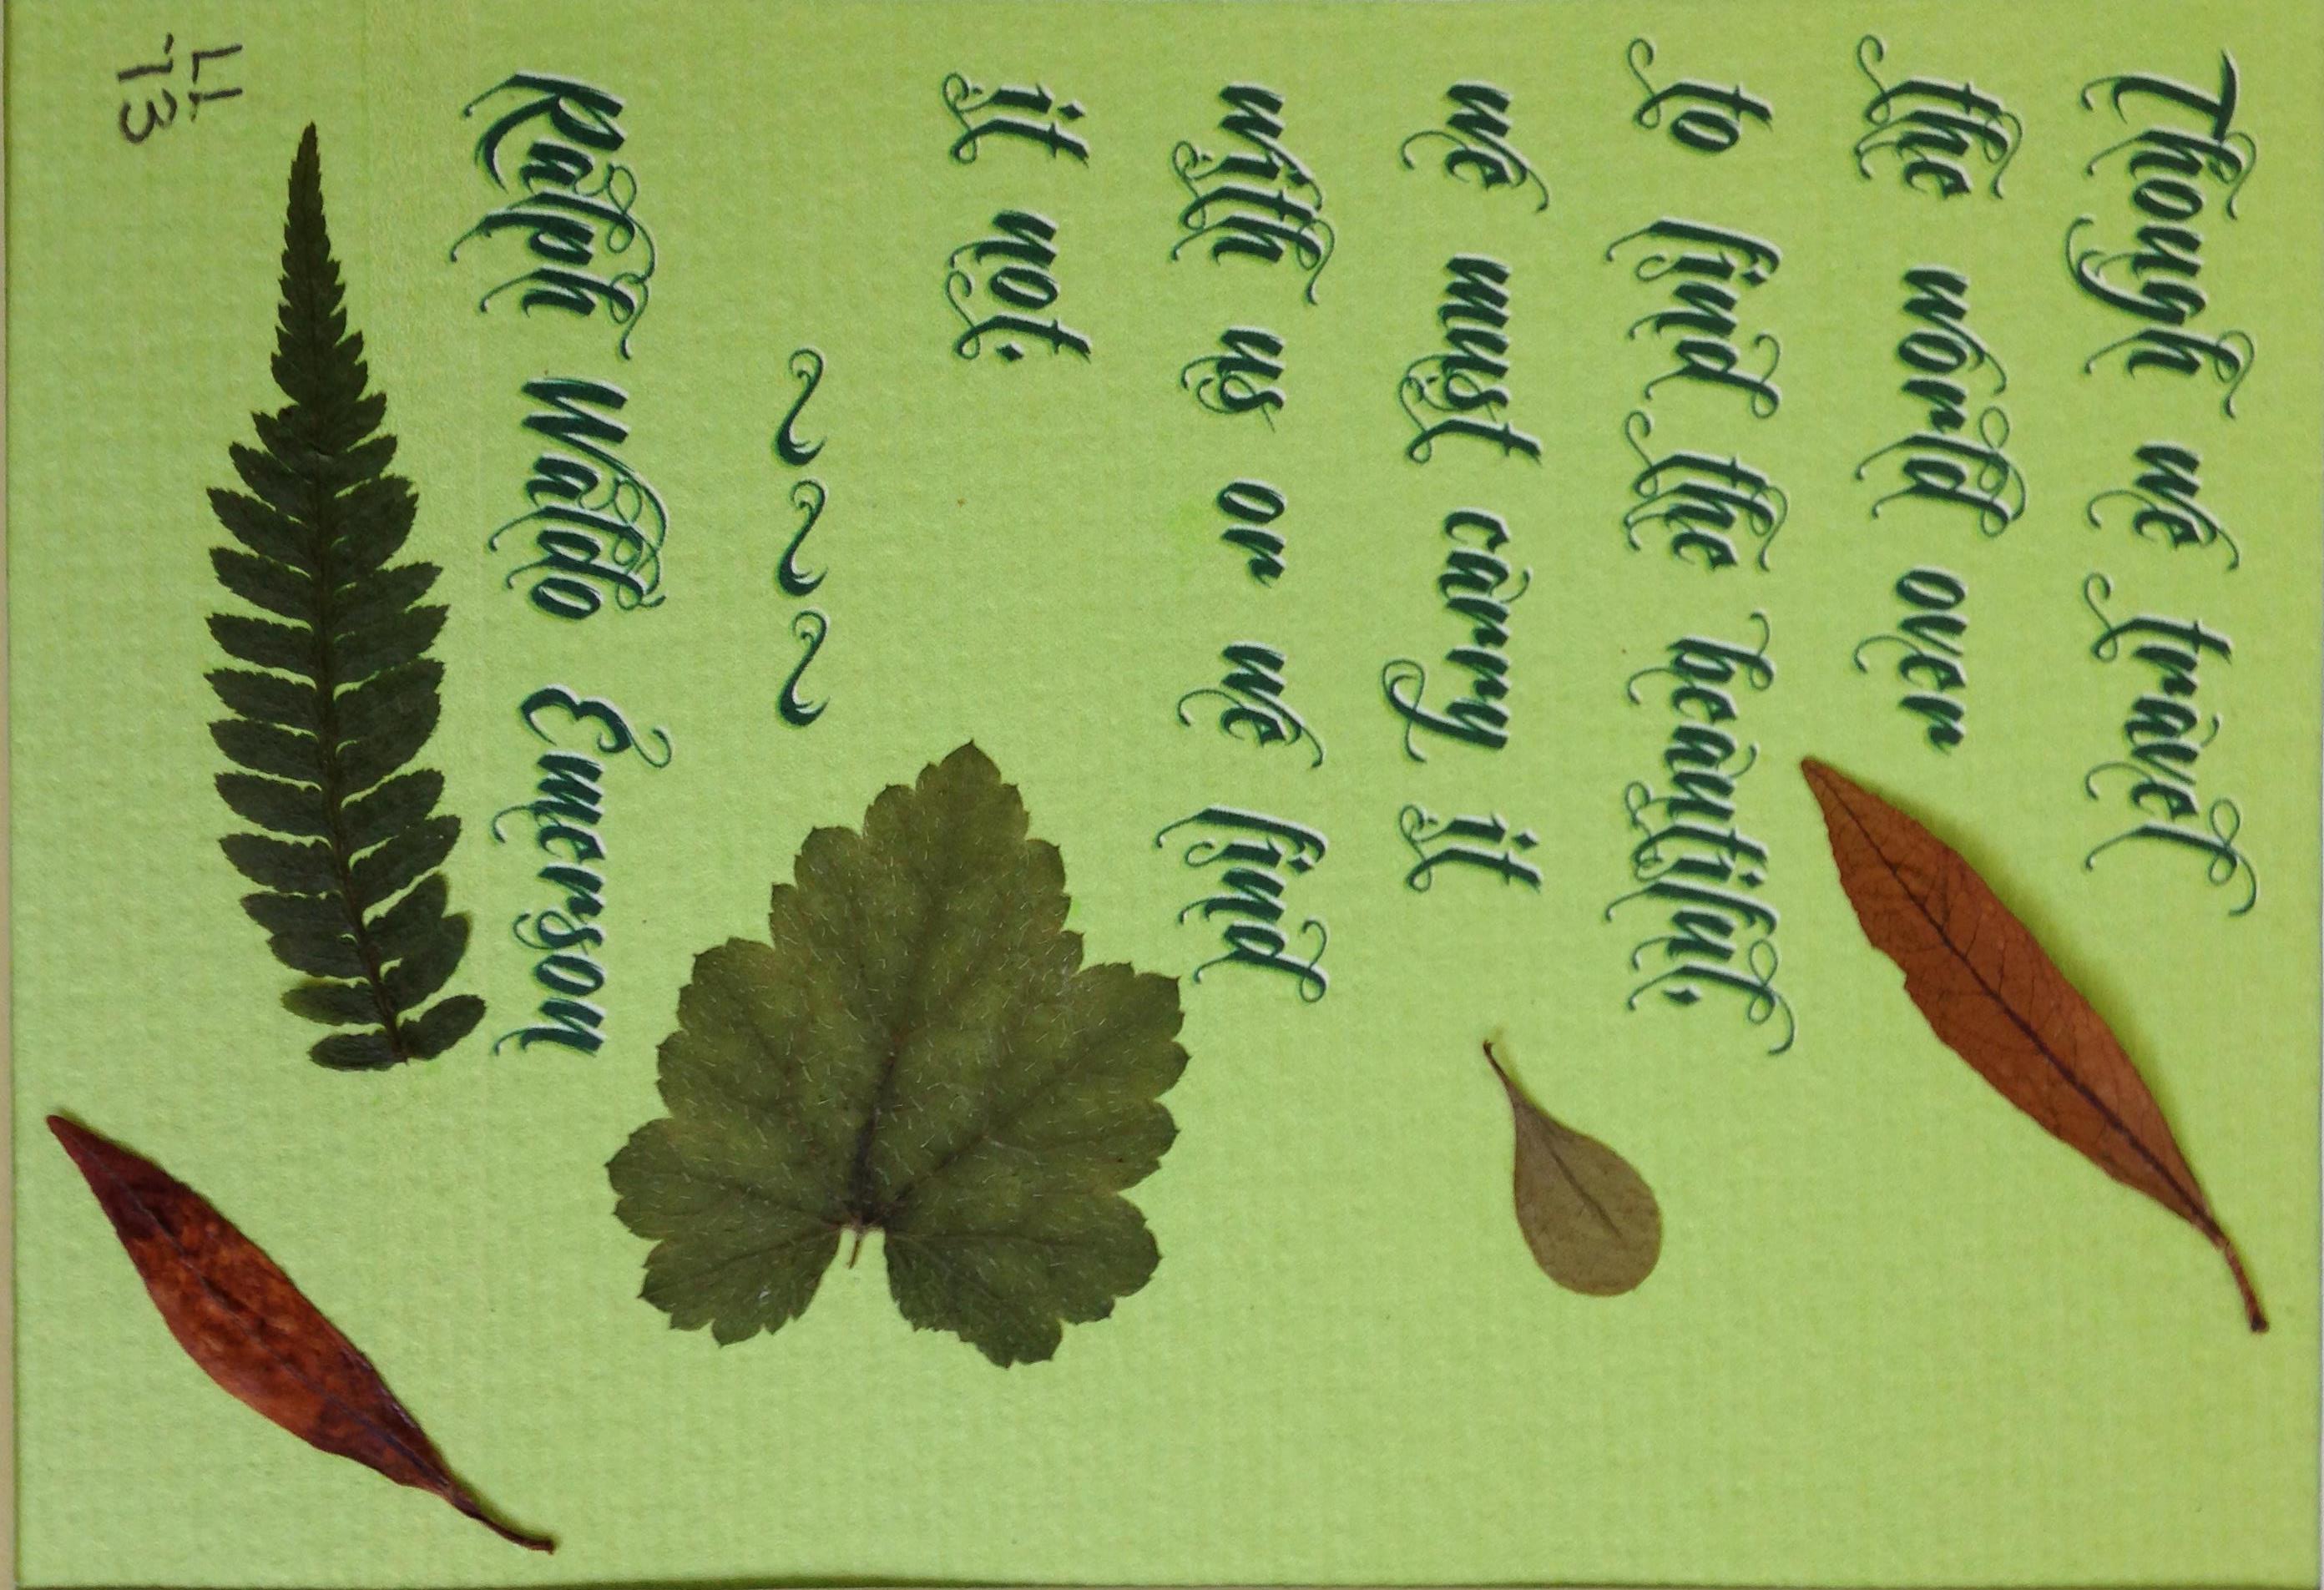 Though we travel
the world over
to find the beautiful,
we must carry it
with us or we find
it not.
Ralph Waldo Emerson
LL
-13